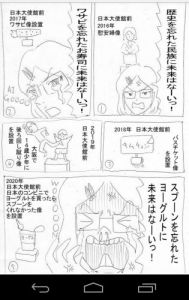 歴史を忘れた民族に
未来はなーいっ!
日本大使館前
2016年
慰安婦像
ワサビを忘れた
お寿司に未来はなーいっ!
日本大使館前
2017年
ワサビ像設置
2018年 日本大使館前
バスチケット像
を設置
2019年
日本大使館前
大阪で
14歳少年に
後ろ回し蹴り像
を設置
スプーンを忘れた
ヨーグルトに
未来はなーいっ!
2020年
日本大使館前
日本のコンビニで
ヨーグルトを買ったら
スプーンを
くれなかった像
を設置